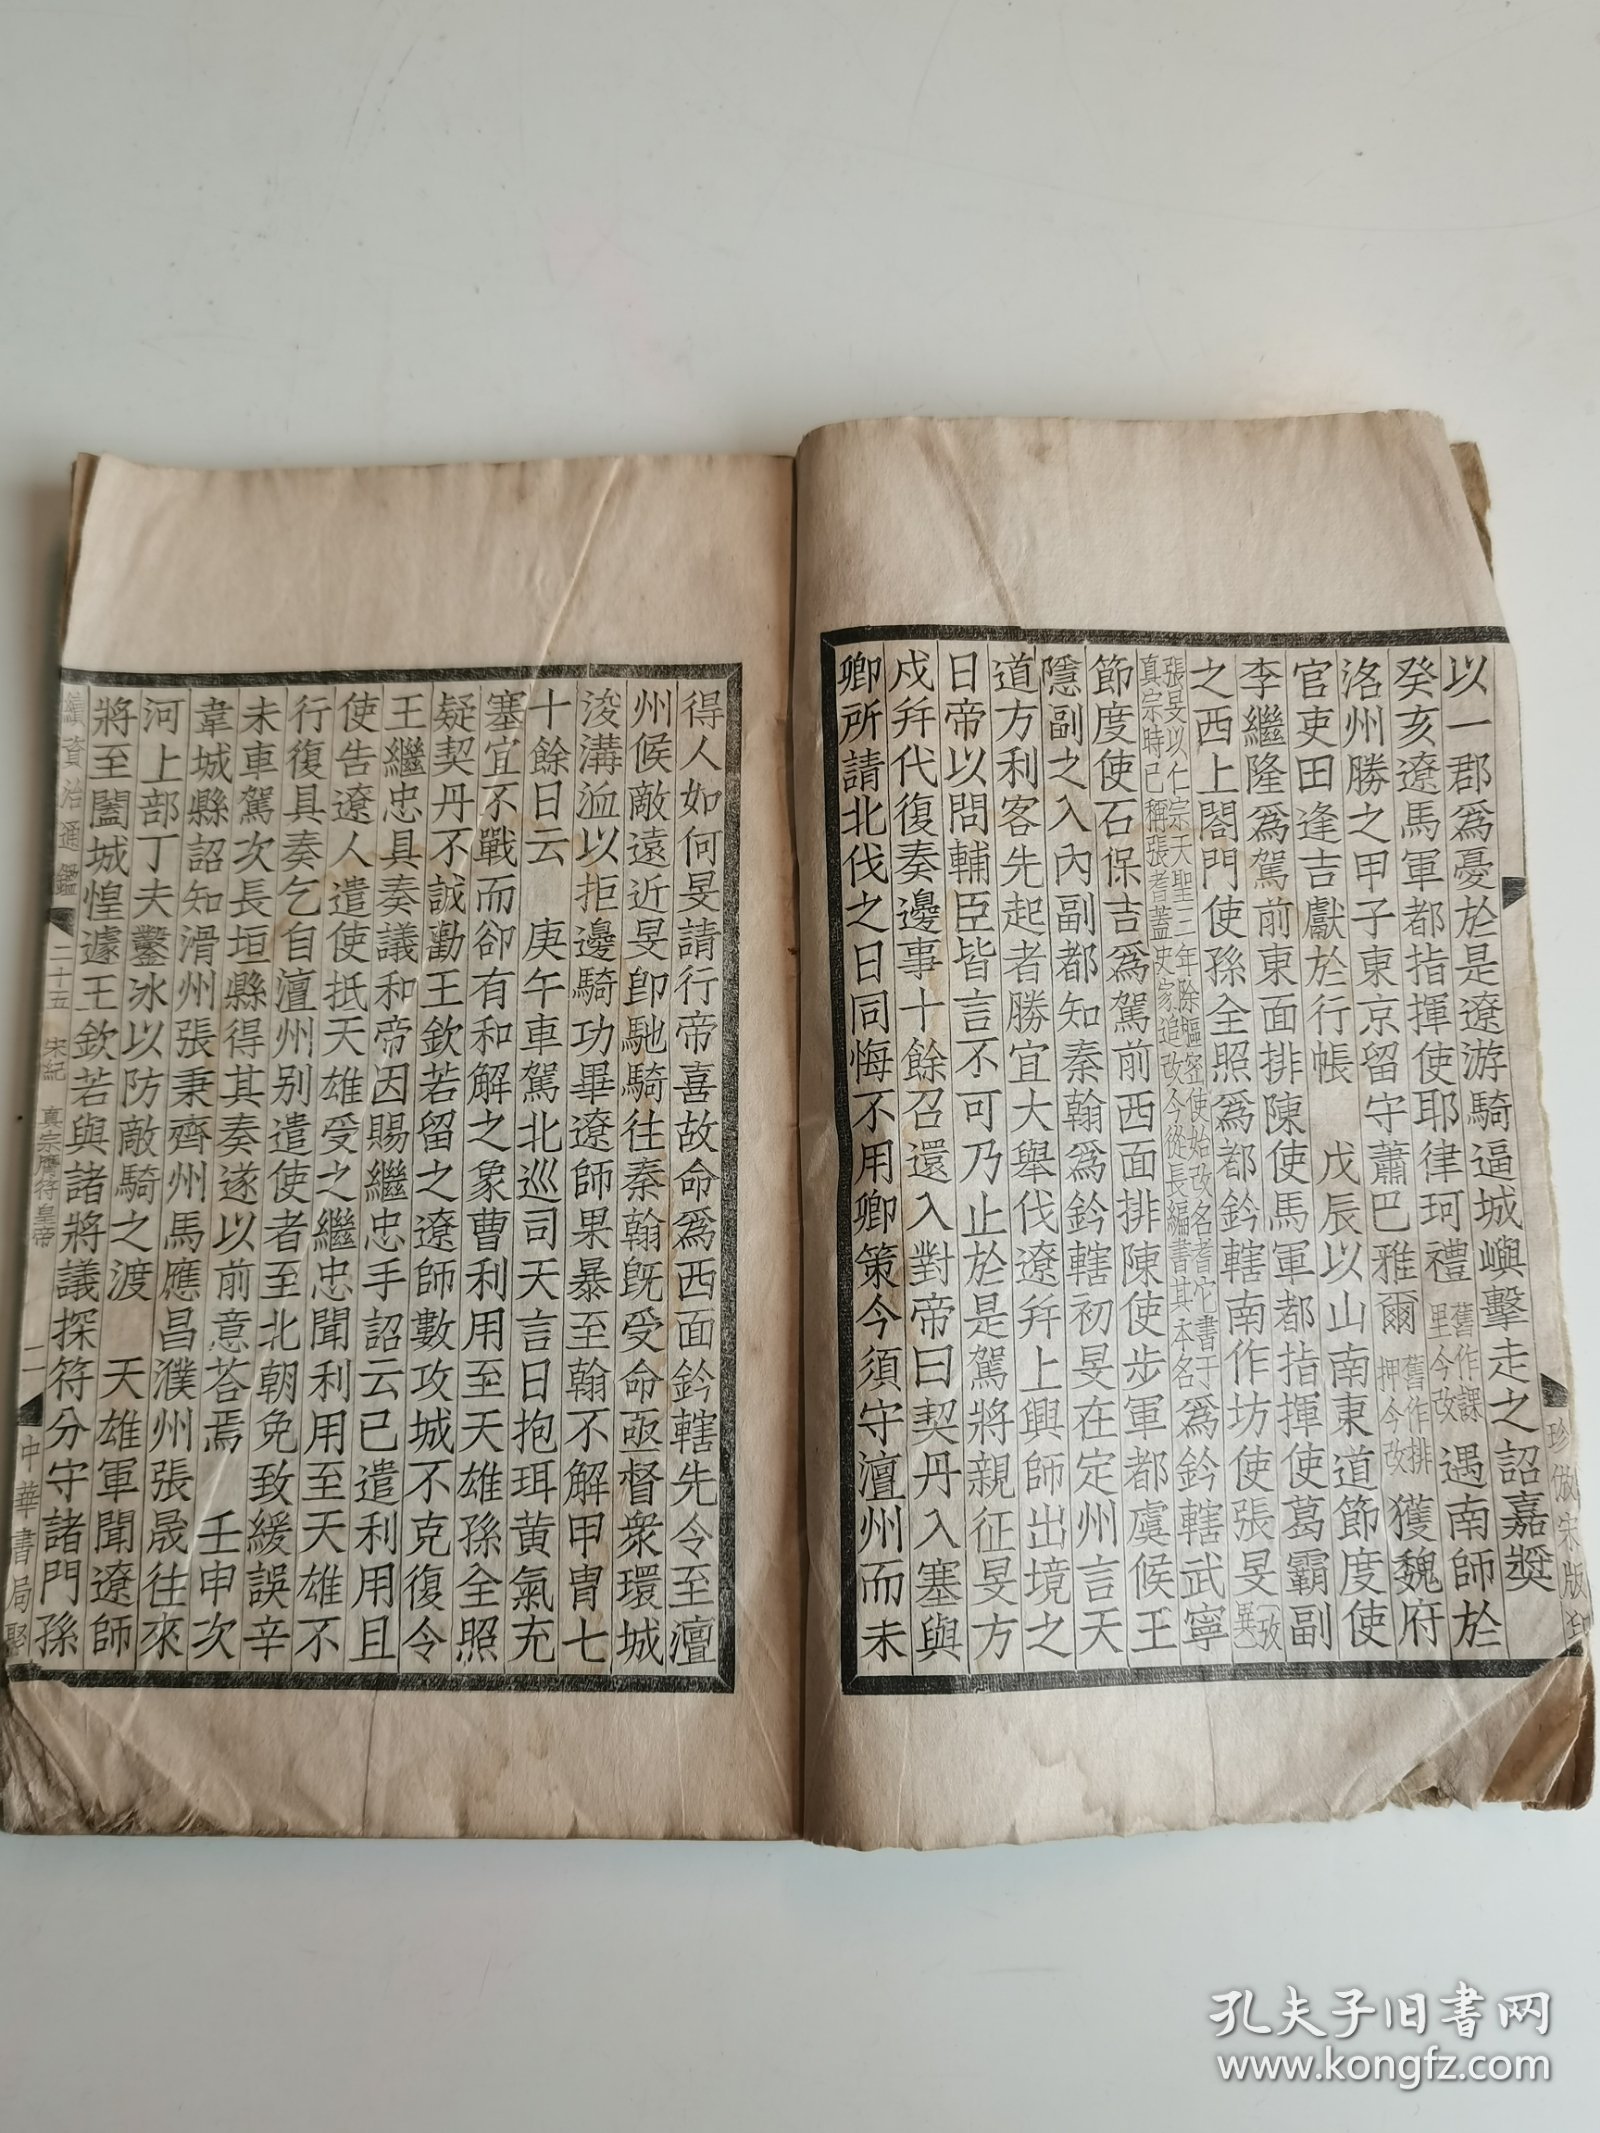 以一郡爲憂於是遼游騎逼城嶼擊走之詔嘉獎
癸亥遼馬軍都指揮使耶律珂禮舊作課里今改遇南師於
洺州勝之甲子東京留守蕭巴雅爾舊作排押今改獲魏府
官吏田逢吉獻於行帳　戊辰以山南東道節度使
李繼隆爲駕前東面排陳使馬軍都指揮使葛霸副
之西上閤門使孫全照爲都鈐轄南作坊使張旻攷異
張旻以仁宗天聖三年除樞密使始改名耆它書于
真宗時已稱張耆蓋史家追改今從長編書其本名
爲鈐轄武寧
節度使石保吉爲駕前西面排陳使步軍都虞候王
隱副之入內副都知秦翰爲鈐轄初旻在定州言天
道方利客先起者勝宜大舉伐遼幷上興師出境之
日帝以問輔臣皆言不可乃止於是駕將親征旻方
戍幷代復奏邊事十餘召還入對帝曰契丹入塞與
卿所請北伐之日同悔不用卿策今須守澶州而未
得人如何旻請行帝喜故命爲西面鈐轄先令至澶
州候敵遠近旻卽馳騎往秦翰旣受命亟督衆環城
浚溝洫以拒邊騎功畢遼師果暴至翰不解甲冑七
十餘日云　庚午車駕北巡司天言日抱珥黃氣充
塞宜不戰而卻有和解之象曹利用至天雄孫全照
疑契丹不誠勸王欽若留之遼師數攻城不克復令
王繼忠具奏議和帝因賜繼忠手詔云已遣利用且
使告遼人遣使抵天雄受之繼忠聞利用至天雄不
行復具奏乞自澶州別遣使者至北朝免致緩誤辛
未車駕次長垣縣得其奏遂以前意荅焉　壬申次
韋城縣詔知滑州張秉齊州馬應昌濮州張晟往來
河上部丁夫鑿冰以防敵騎之渡　天雄軍聞遼師
將至闔城惶遽王欽若與諸將議探符分守諸門孫
續資治通鑑　二十五　宋紀　真宗膺符皇帝　二　中華書局聚
珍倣宋版印
孔夫子旧书网
www.kongfz.com